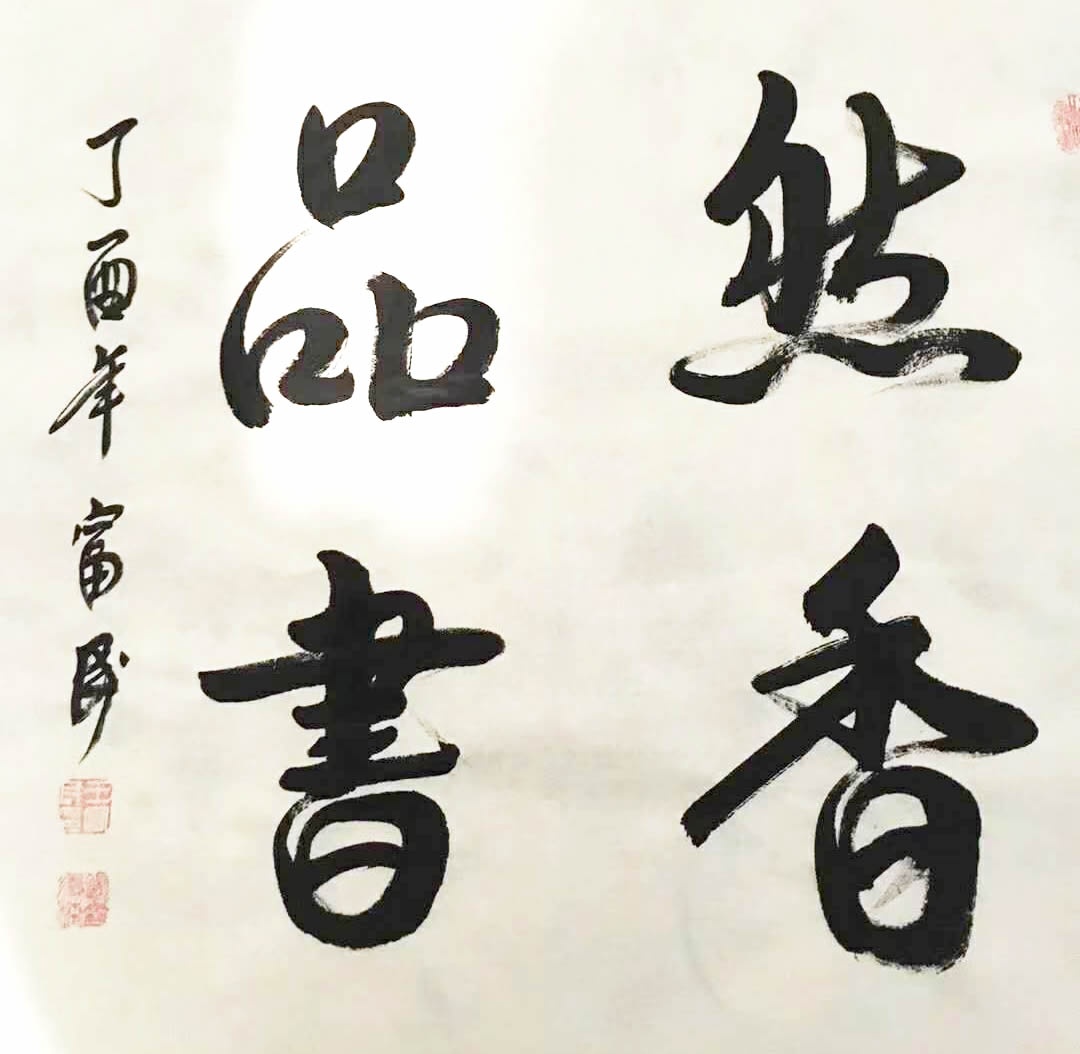 然香
品書
丁酉年 富民